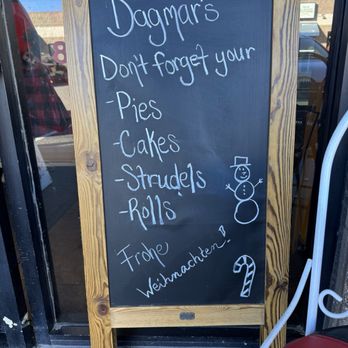 Dagmar's
Don't forget your
-Pies
-Cakes
-Strudels
-Rolls
Frohe
Weihnachten!